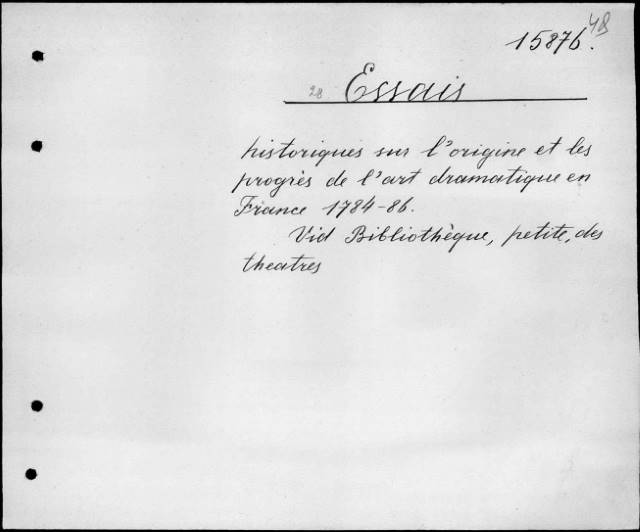 48
15876.
28 Essais
historiques sur l'origine et les
progrès de l'art dramatique en
France 1784-86.
Vid Bibliothèque, petite, des
theatres